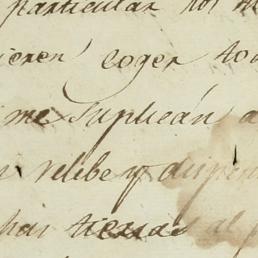 particular no
ieren coger to
me Suplican a
relibe y dispen
has tierras al